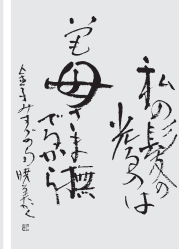 私の髪の
光るのは
いつも
母さま撫
でるから
金子みすゞの